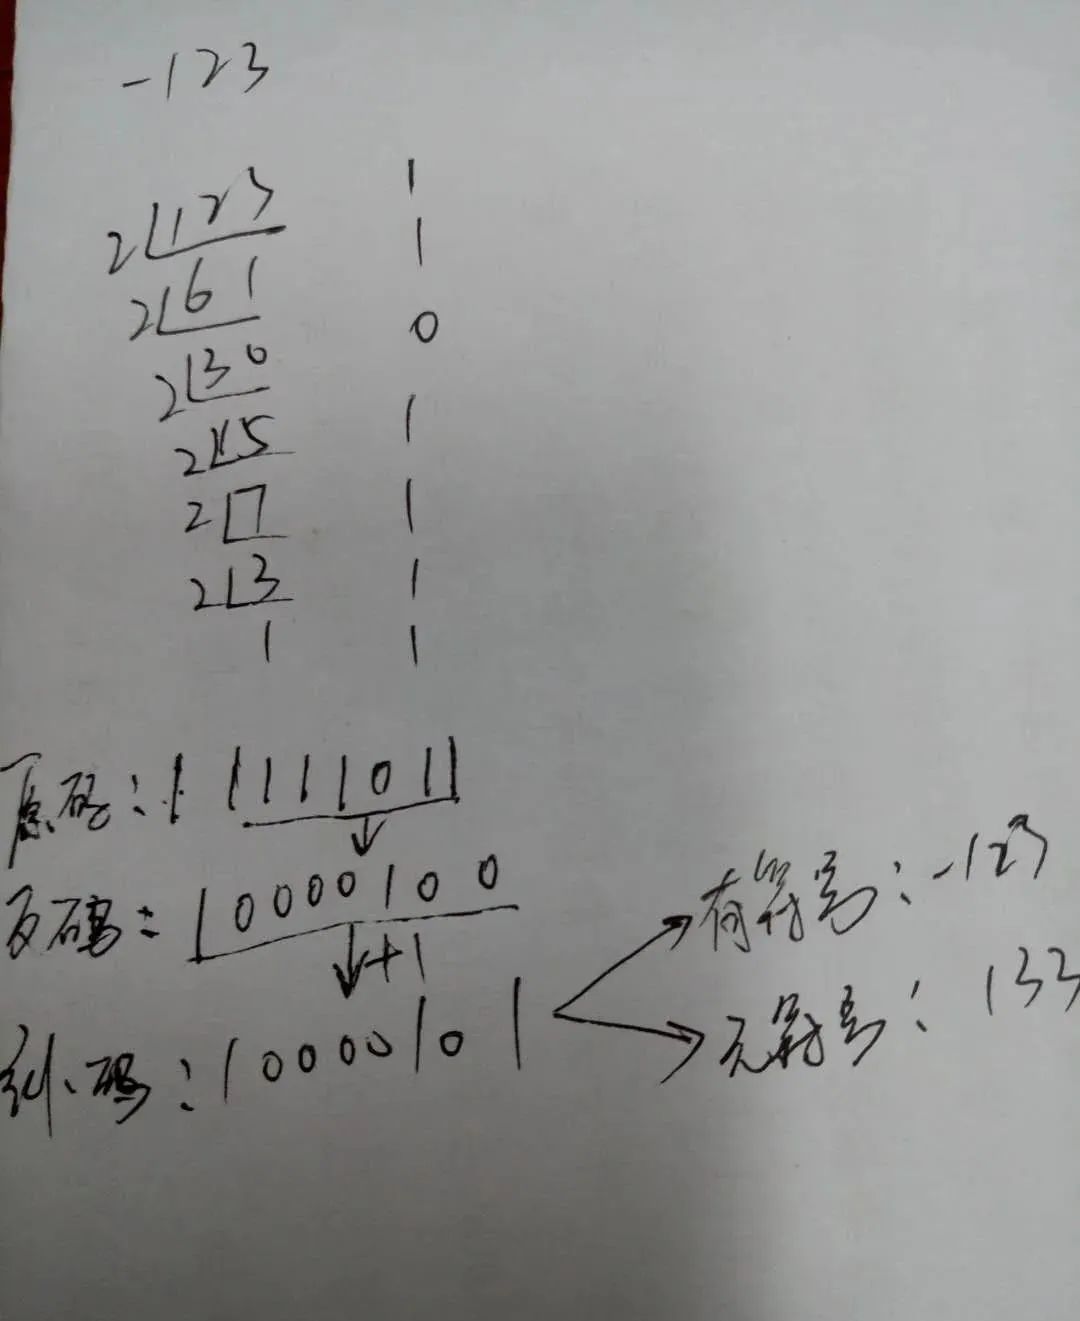 -123
2 123 1
2 61 1
2 30 0
2 15 1
2 7 1
2 3 1
1 1
原码: 1 1111011
反码: 10000100
+1
补码: 10000101
有符号: -123
无符号: 133